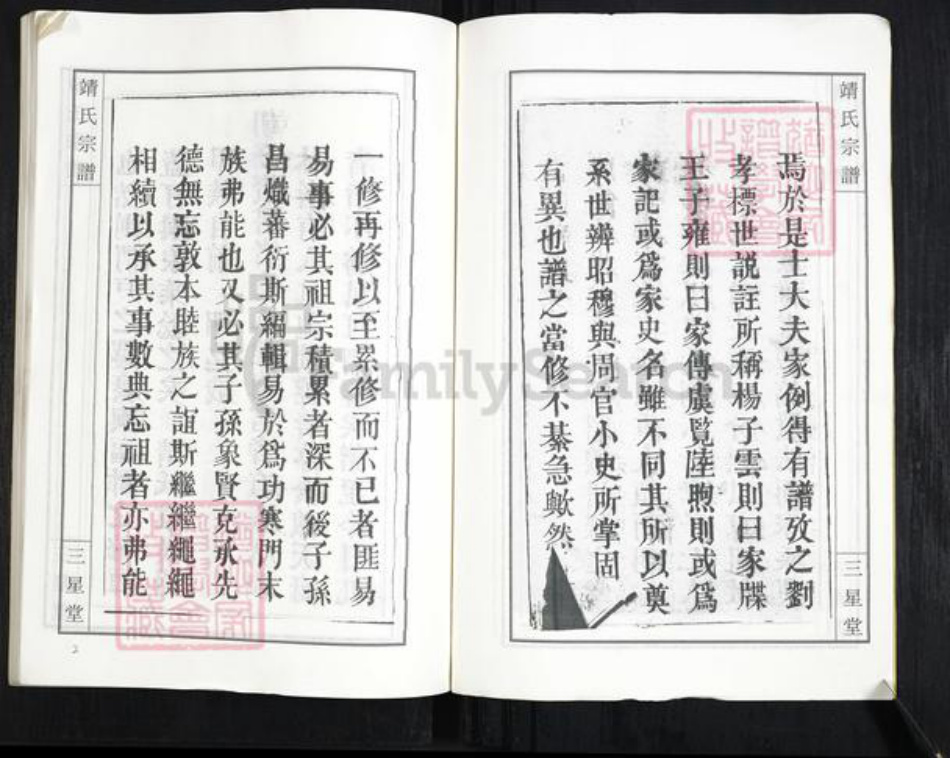 靖氏宗譜
焉於是士大夫家例得有譜攷之劉
孝標世說註所稱楊子雲則曰家牒
王子雍則曰家傳虞覽陸煦則或爲
家記或爲家史名雖不同其所以奠
系世辨昭穆與周官小史所掌固
有異也譜之當修不綦急歟然
三星堂
一修再修以至累修而不已者匪易
易事必其祖宗積累者深而後子孫
昌熾蕃衍斯編輯易於爲功寒門末
族弗能也又必其子孫象賢克承先
德無忘敦本睦族之誼斯繼繼繩繩
相續以承其事數典忘祖者亦弗能
靖氏宗譜
三星堂
2
FamilySearch